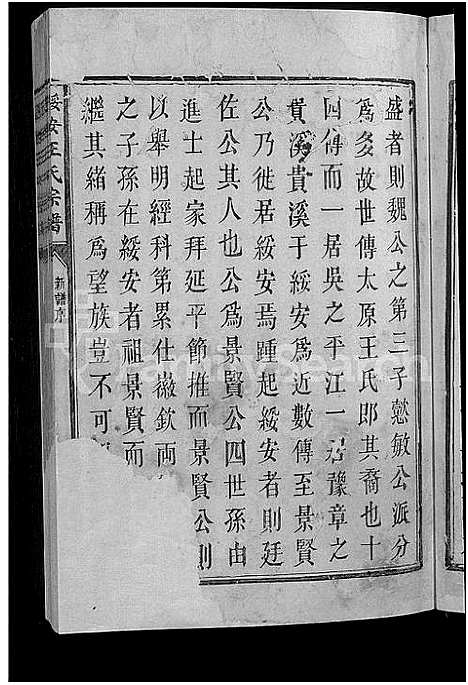 盛者則魏公之第三子懿敏公派分
爲多故世傳太原王氏郎其裔也十
四傳而一居吳之平江一居豫章之
貴溪貴溪于綏安爲近數傳至景賢
公乃徙居綏安焉踵起綏安者則廷
佐公其人也公爲景賢公四世孫由
進士起家拜延平節推而景賢公則
以舉明經科第累仕徽欽兩
之子孫在綏安者祖景賢而
繼其緒稱爲望族豈不可
綏安王氏宗譜
新譜序
FamilySearch